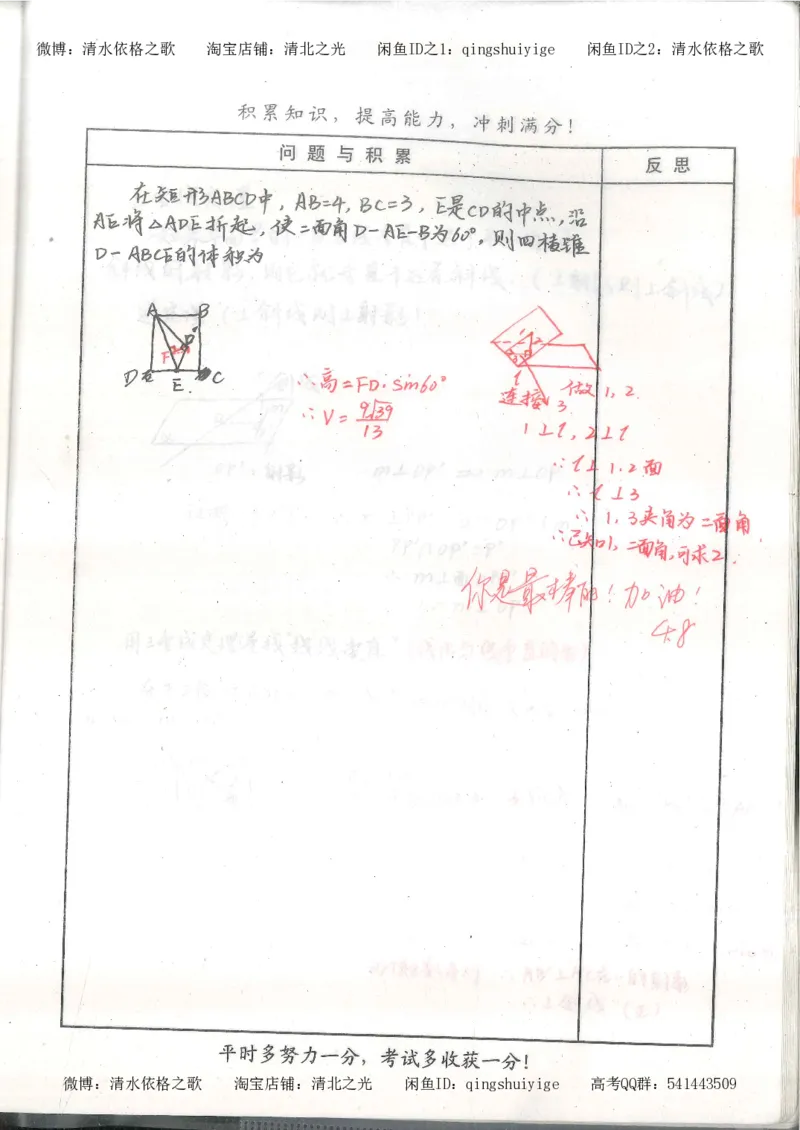 微博：清水依格之歌 淘宝店铺：清北之光 闲鱼ID之1：qingshuiyige 闲鱼ID之2：清水依格之歌
积累知识，提高能力，冲刺满分！
问题与积累 反思
在矩形ABCD中，AB=4，BC=3，E是CD的中点，沿
AE将△ADE折起，使二面角D-AE-B为60°，则四棱锥
D-ABCE的体积为
A B
D'
F
D E C
∴高=FD·sin60°
∴V=9√39/13
1 2
3
l
连接3
做1,2
1⊥l，2⊥l
∴l⊥1.2面
∴l⊥3
∴1,3夹角为二面角
∴已知1，二面角，可求2.
你是最棒的！加油！
4.8
平时多努力一分，考试多收获一分！
微博：清水依格之歌 淘宝店铺：清北之光 闲鱼ID：qingshuiyige 高考QQ群：541443509